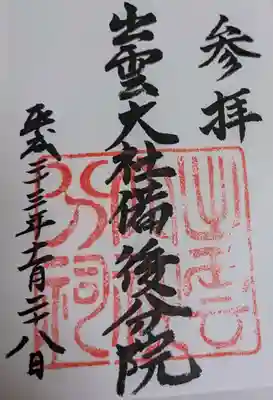 参拝
出雲大社備後分院
平成二十三年十二月二十八日